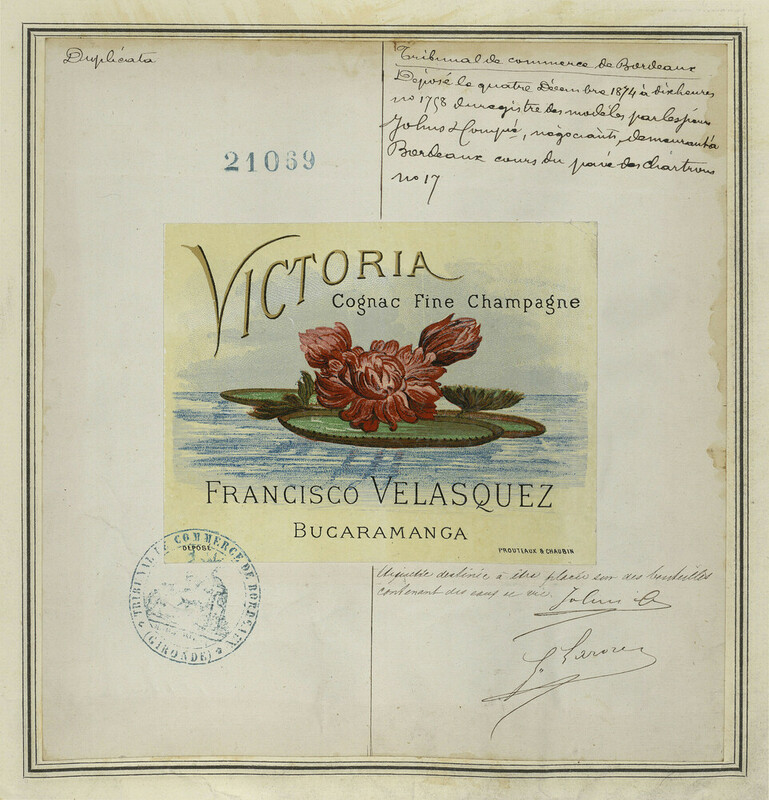 Duplicata
Tribunal de commerce de Bordeaux
Déposé le quatre Décembre 1874 à dix heures
no 1758 du registre des modèles par les sieurs
Johns & Compie, négociants, demeurant à
Bordeaux cours du pavé des Chartrons
no 17
21069
VICTORIA
Cognac Fine Champagne
FRANCISCO VELASQUEZ
BUCARAMANGA
DÉPOSÉ
PROUTEAUX & CHAUBIN
TRIBUNAL DE COMMERCE DE BORDEAUX
(GIRONDE)
Etiquette destinée à être placée sur des bouteilles
contenant des eaux de vie. Johns &